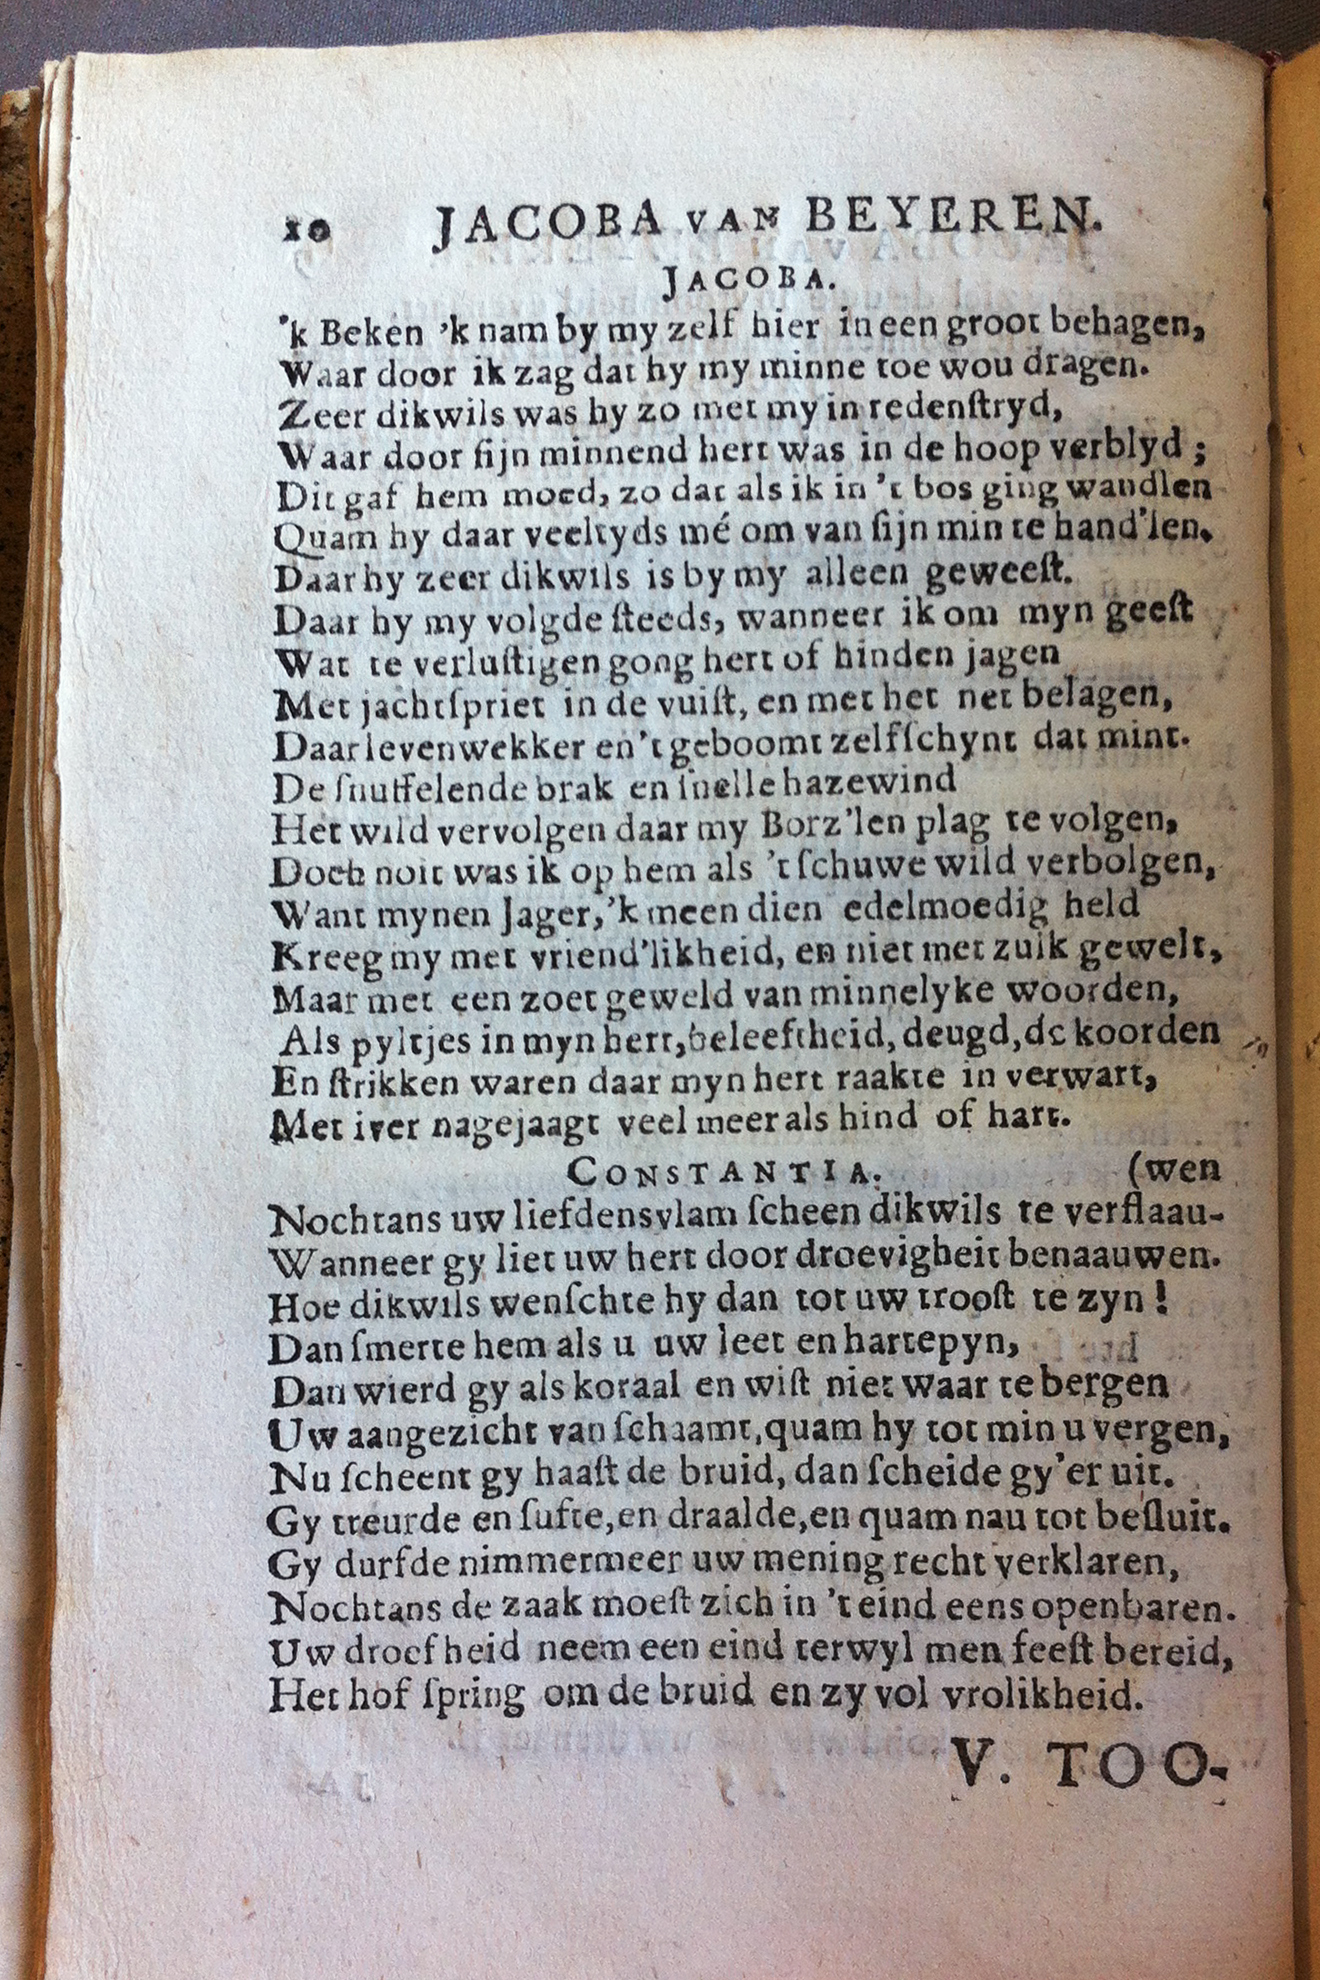 10 JACOBA VAN BEYEREN.
JACOBA.
'k Beken 'k nam by my zelf hier in een groot behagen,
Waar door ik zag dat hy my minne toe wou dragen.
Zeer dikwils was hy zo met my in redenſtryd,
Waar door ſijn minnend hert was in de hoop verblyd ;
Dit gaf hem moed, zo dat als ik in 't bos ging wandlen
Quam hy daar veeltyds mé om van ſijn min te hand'len.
Daar hy zeer dikwils is by my alleen geweeſt.
Daar hy my volgde ſteeds, wanneer ik om myn geeſt
Wat te verluſtigen gong hert of hinden jagen
Met jachtſpriet in de vuiſt, en met het net belagen,
Daar levenwekker en 't geboomt zelfſchynt dat mint.
De ſnuffelende brak en ſnelle hazewind
Het wild vervolgen daar my Borz'len plag te volgen,
Doch noit was ik op hem als 't ſchuwe wild verbolgen,
Want mynen Jager, 'k meen dien edelmoedig held
Kreeg my met vriend'likheid, en niet met zulk gewelt,
Maar met een zoet geweld van minnelyke woorden,
Als pyltjes in myn hert, beleeftheid, deugd, de koorden
En ſtrikken waren daar myn hert raakte in verwart,
Met iver nagejaagt veel meer als hind of hart.
CONSTANTIA. (wen
Nochtans uw liefdensvlam ſcheen dikwils te verflaau-
Wanneer gy liet uw hert door droevigheit benaauwen.
Hoe dikwils wenſchte hy dan tot uw trooſt te zyn !
Dan ſmerte hem als u uw leet en hartepyn,
Dan wierd gy als koraal en wiſt niet waar te bergen
Uw aangezicht van ſchaamt, quam hy tot min u vergen,
Nu ſcheent gy haaſt de bruid, dan ſcheide gy'er uit.
Gy treurde en ſufte, en draalde, en quam nau tot beſluit.
Gy durfde nimmermeer uw mening recht verklaren,
Nochtans de zaak moeſt zich in 't eind eens openbaren.
Uw droefheid neem een eind terwyl men feeſt bereid,
Het hof ſpring om de bruid en zy vol vrolikheid.
V. TOO-